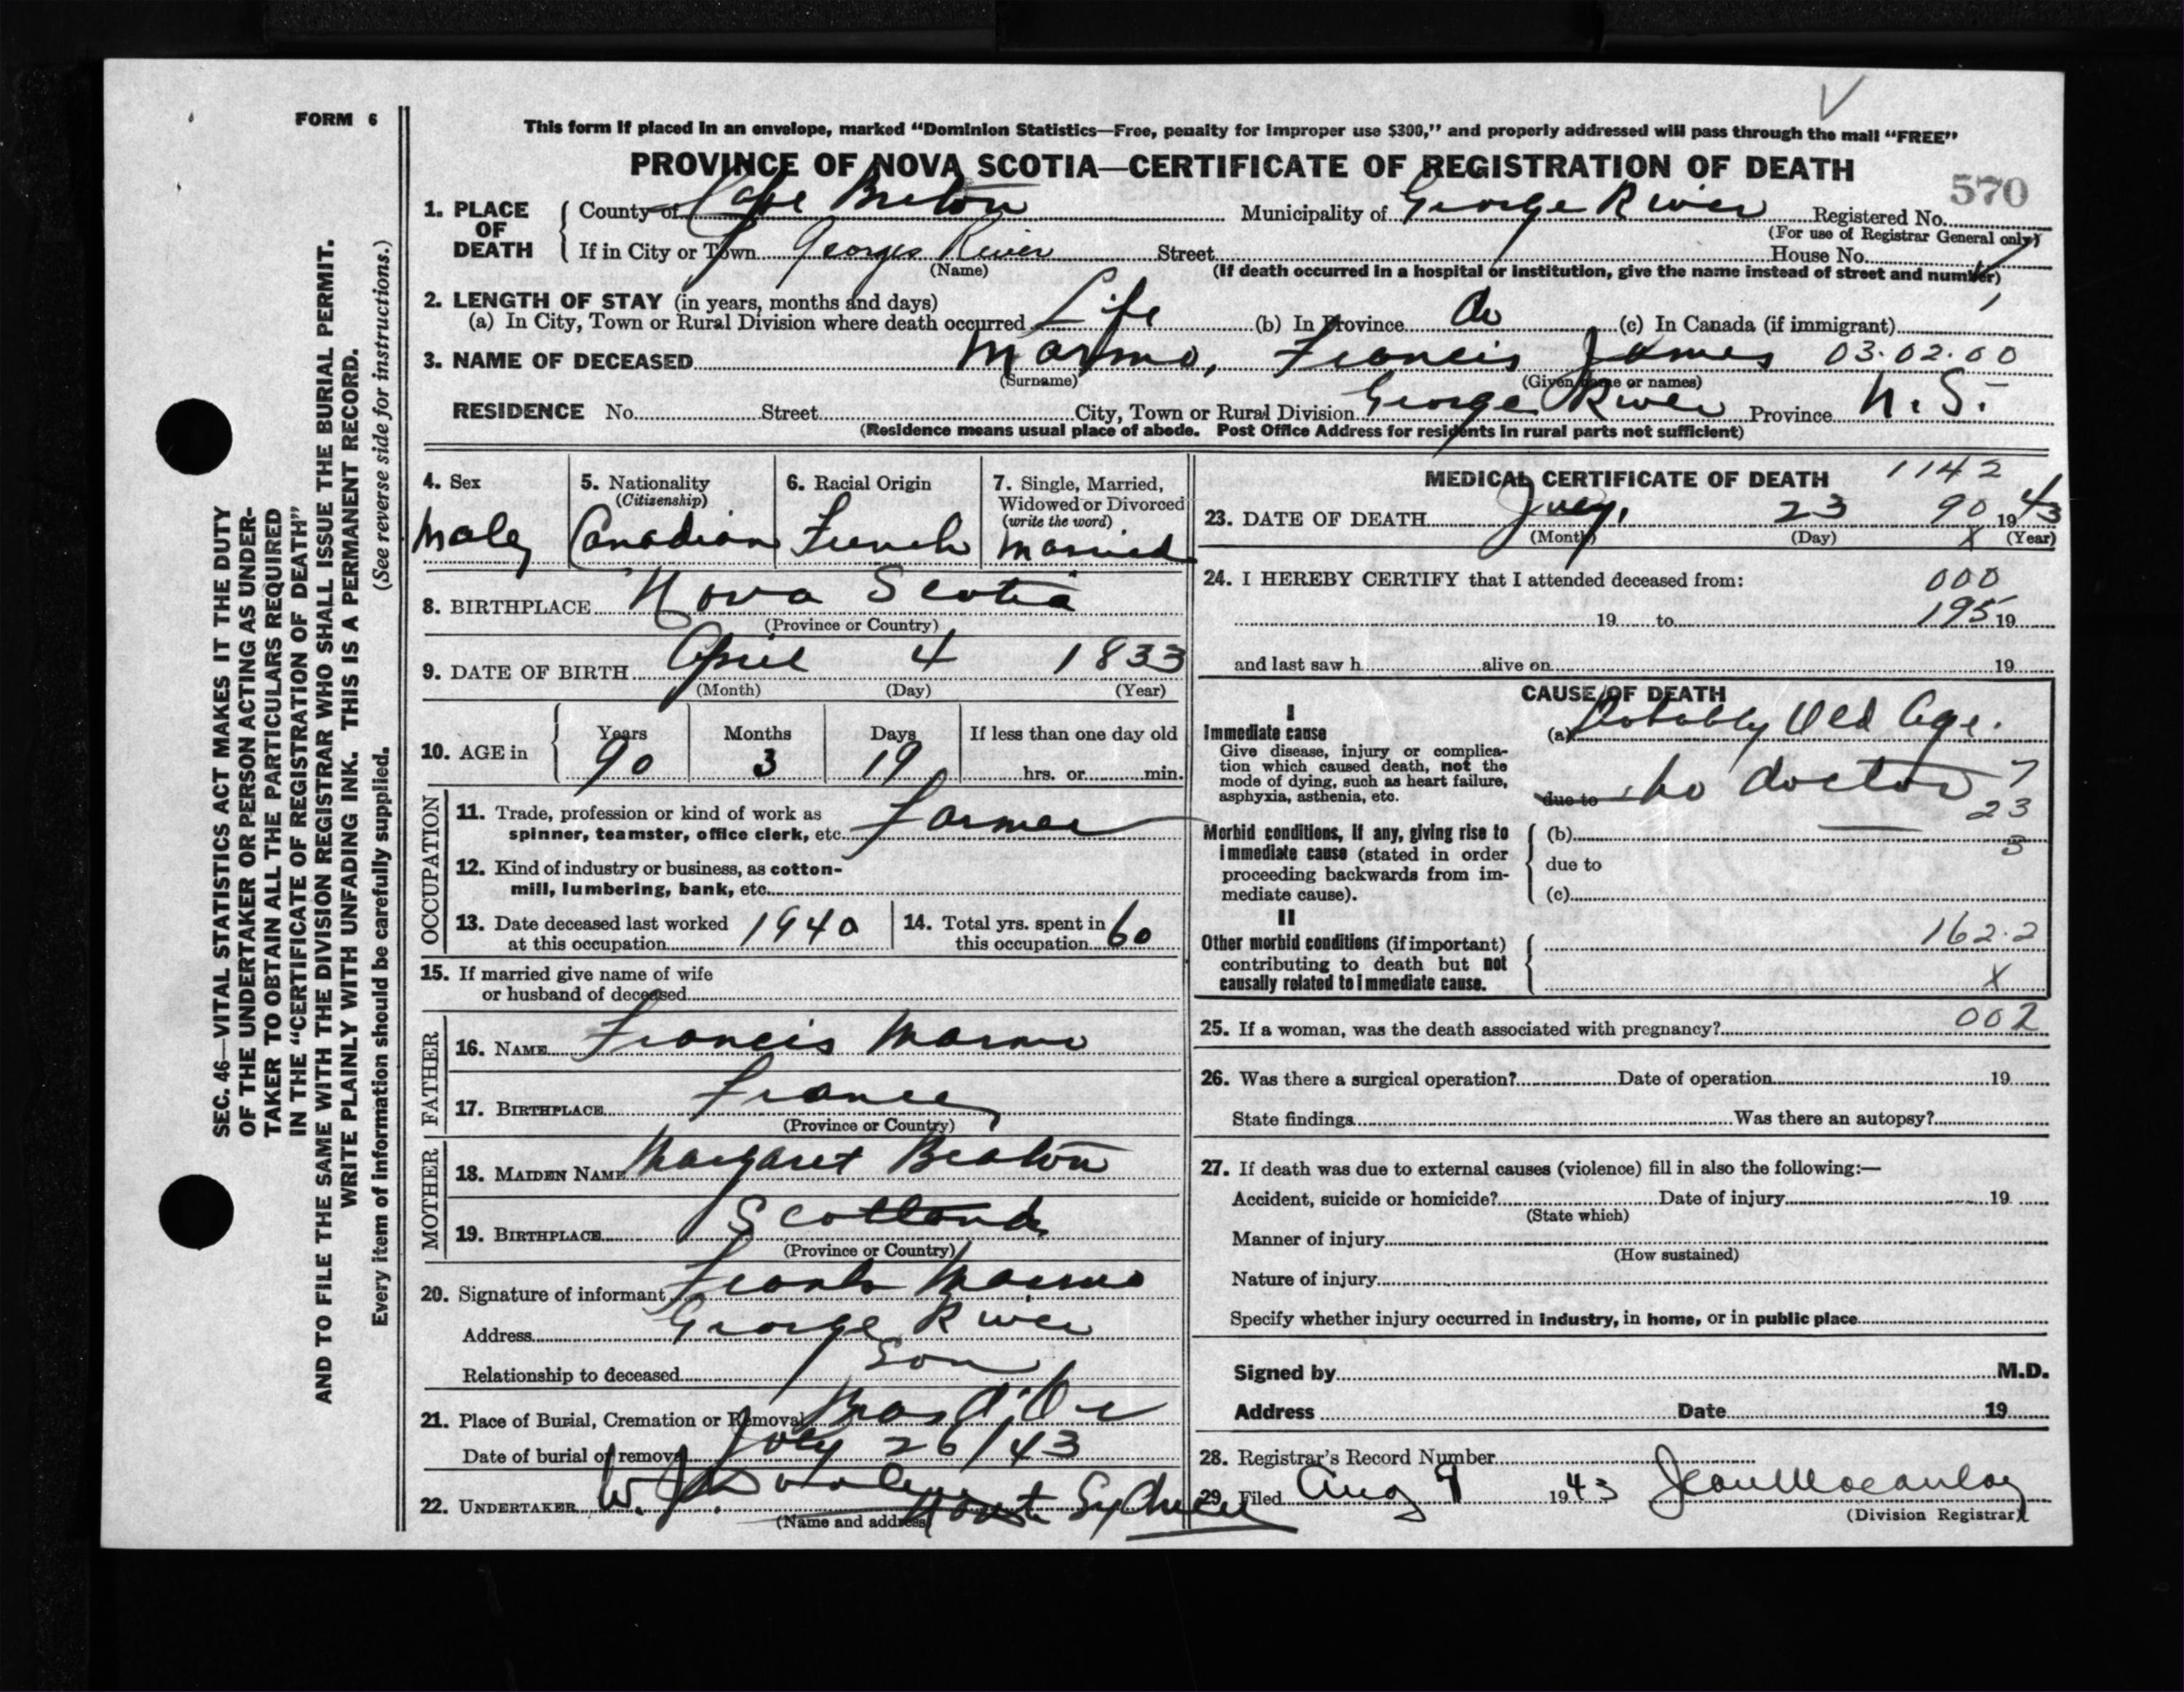 FORM 6
This form if placed in an envelope, marked “Dominion Statistics—Free, penalty for improper use $300,” and properly addressed will pass through the mail “FREE”
PROVINCE OF NOVA SCOTIA—CERTIFICATE OF REGISTRATION OF DEATH
570
1. PLACE OF DEATH { County of Cape Breton Municipality of George River Registered No.
(For use of Registrar General only)
If in City or Town Georges River Street House No.
(Name) (If death occurred in a hospital or institution, give the name instead of street and number)
2. LENGTH OF STAY (in years, months and days)
(a) In City, Town or Rural Division where death occurred Life (b) In Province do (c) In Canada (if immigrant)
3. NAME OF DECEASED Marmo, Francis James 03.02.00
(Surname) (Given name or names)
RESIDENCE No. Street City, Town or Rural Division George River Province N.S.
(Residence means usual place of abode. Post Office Address for residents in rural parts not sufficient)
4. Sex 5. Nationality 6. Racial Origin 7. Single, Married,
(Citizenship) Widowed or Divorced
(write the word)
Male Canadian French Married
8. BIRTHPLACE Nova Scotia
(Province or Country)
9. DATE OF BIRTH April 4 1833
(Month) (Day) (Year)
Years Months Days If less than one day old
10. AGE in { 90 3 19 hrs. or min.
OCCUPATION
11. Trade, profession or kind of work as
spinner, teamster, office clerk, etc. Farmer
12. Kind of industry or business, as cotton-
mill, lumbering, bank, etc.
13. Date deceased last worked
at this occupation 1940
14. Total yrs. spent in
this occupation 60
15. If married give name of wife
or husband of deceased
FATHER
16. NAME Francis Marmo
17. BIRTHPLACE France
(Province or Country)
MOTHER
18. MAIDEN NAME Margaret Beaton
19. BIRTHPLACE Scotland
(Province or Country)
20. Signature of informant Frank Marmo
Address George River
Relationship to deceased Son
21. Place of Burial, Cremation or Removal Bras d'Or
Date of burial or removal July 26/43
22. UNDERTAKER W. J. Dooley North Sydney
(Name and address)
MEDICAL CERTIFICATE OF DEATH 1142
23. DATE OF DEATH July, 23 90 1943
(Month) (Day) X (Year)
24. I HEREBY CERTIFY that I attended deceased from: 000
19 to 195 19
and last saw h alive on 19
CAUSE OF DEATH
I
Immediate cause (a) Probably Old Age.
Give disease, injury or complica-
tion which caused death, not the
mode of dying, such as heart failure,
asphyxia, asthenia, etc.
due to no doctor 7
23
3
Morbid conditions, if any, giving rise to
immediate cause (stated in order
proceeding backwards from im-
mediate cause).
(b)
due to
(c)
II
Other morbid conditions (if important)
contributing to death but not
causally related to immediate cause.
162.2
X
25. If a woman, was the death associated with pregnancy? 002
26. Was there a surgical operation? Date of operation 19
State findings Was there an autopsy?
27. If death was due to external causes (violence) fill in also the following:—
Accident, suicide or homicide? Date of injury 19
(State which)
Manner of injury
(How sustained)
Nature of injury
Specify whether injury occurred in industry, in home, or in public place
Signed by M.D.
Address Date 19
28. Registrar's Record Number
29. Filed Aug 9 1943 Jean Macaulay
(Division Registrar)
SEC. 46—VITAL STATISTICS ACT MAKES IT THE DUTY
OF THE UNDERTAKER OR PERSON ACTING AS UNDER-
TAKER TO OBTAIN ALL THE PARTICULARS REQUIRED
IN THE “CERTIFICATE OF REGISTRATION OF DEATH”
AND TO FILE THE SAME WITH THE DIVISION REGISTRAR WHO SHALL ISSUE THE BURIAL PERMIT.
WRITE PLAINLY WITH UNFADING INK. THIS IS A PERMANENT RECORD.
Every item of information should be carefully supplied. (See reverse side for instructions.)